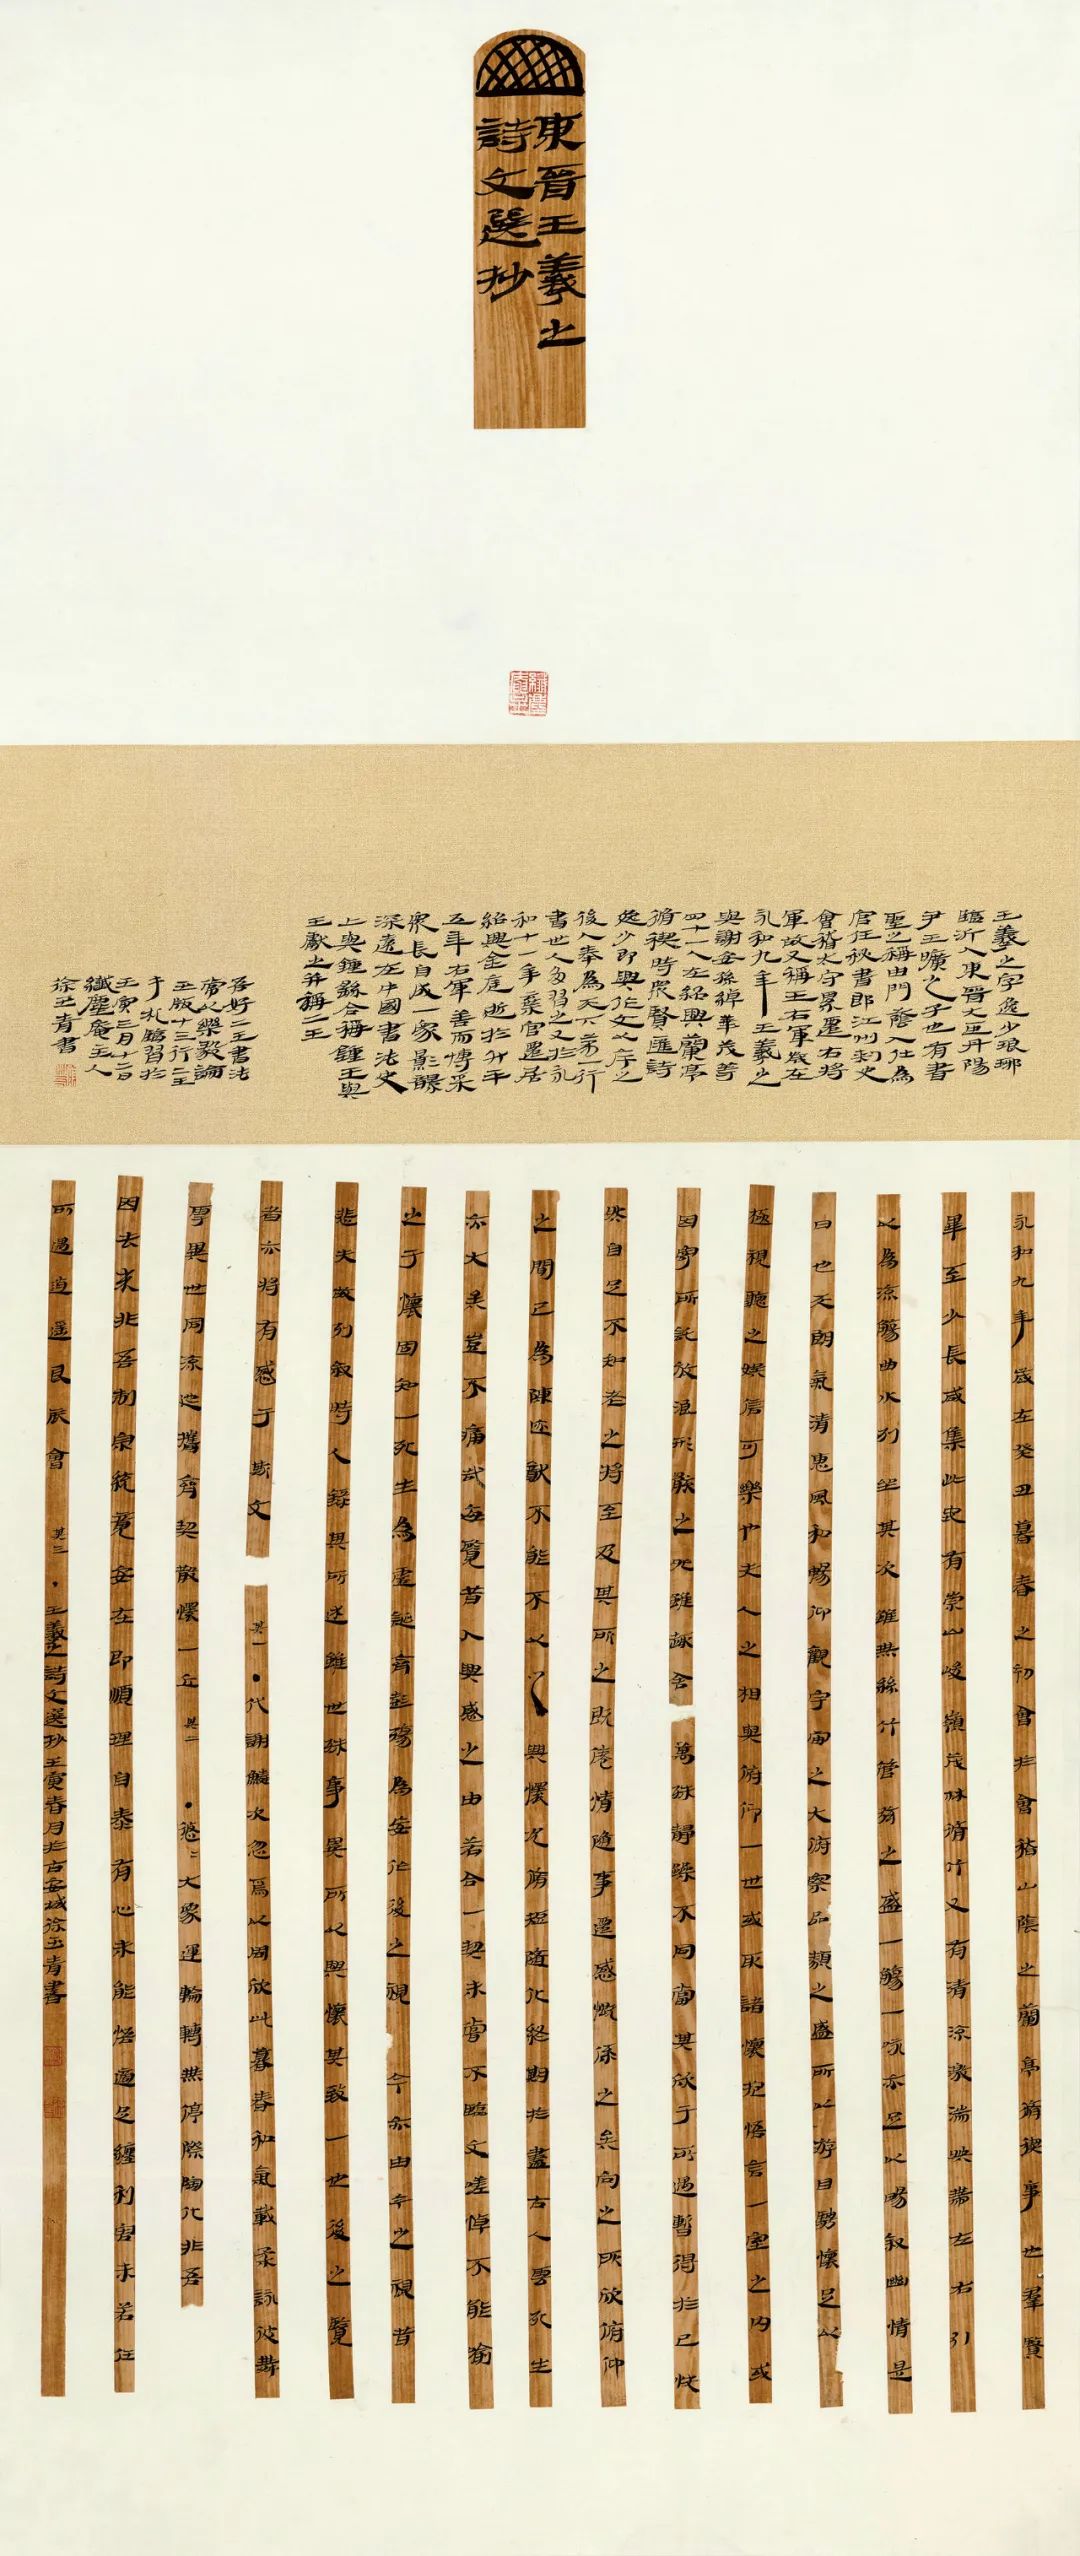 東晉王羲之
詩文選抄
王羲之字逸少琅琊
臨沂人東晉大臣丹陽
尹王曠之子也有書
聖之稱由門蔭入仕為
官任秘書郎江州刺史
會稽太守累遷右將
軍故又稱王右軍歲在
永和九年王羲之
與謝安孫綽華茂等
四十一人在紹興蘭亭
脩禊時眾賢匯詩
逸少即興作文以序之
後人奉為天下第行
書世人多習之又於永
和十一年棄官遷居
紹興金庭逝於升平
五年右軍善而博采
眾長自成一家影響
深遠在中國書法史
上與鍾繇合稱鍾王與
王獻之并稱二王
吾好二王書法
嘗以樂毅論
玉版十三行二王
手札臨習於
壬寅三月十二日
纖塵庵主人
徐玉青書
永和九年歲在癸丑暮春之初會於會稽山陰之蘭亭脩禊事也羣賢
畢至少長咸集此地有崇山峻嶺茂林脩竹又有清涼激湍映帶左右引
以為流觴曲水列坐其次雖無絲竹管弦之盛一觴一詠亦足以暢叙幽情是
日也天朗氣清惠風和暢仰觀宇宙之大俯察品類之盛所以游目騁懷足以
極視聽之娛信可樂也夫人之相與俯仰一世或取諸懷抱悟言一室之內或
因寄所託放浪形骸之外雖趣舍萬殊靜躁不同當其欣于所遇暫得於己快
然自足不知老之將至及其所之既倦情隨事遷感慨係之矣向之所欣俯仰
之間已為陳迹猷不能不以之興懷况脩短隨化終期於盡古人云死生
亦大矣豈不痛哉每覽昔人興感之由若合一契未嘗不臨文嗟悼不能喻
之于懷固知一死生為虛誕齊彭殤為妄作後之視今亦由今之視昔
悲夫故列叙時人錄其所述雖世殊事異所以興懷其致一也後之覽
者亦將有感于斯文 其一 代謝鱗次忽焉以周欣此暮春和氣載柔詠彼舞
雩異世同流迺攜齊契散懷一丘 其二 悠悠大象運輪轉無停際陶化非吾
因去來非吾制宗統竟安在即順理自泰有心未能悟適足纏利害未若任
所遇逍遙良辰會 其三 王羲之詩文選抄壬寅春月於古安城徐玉青書